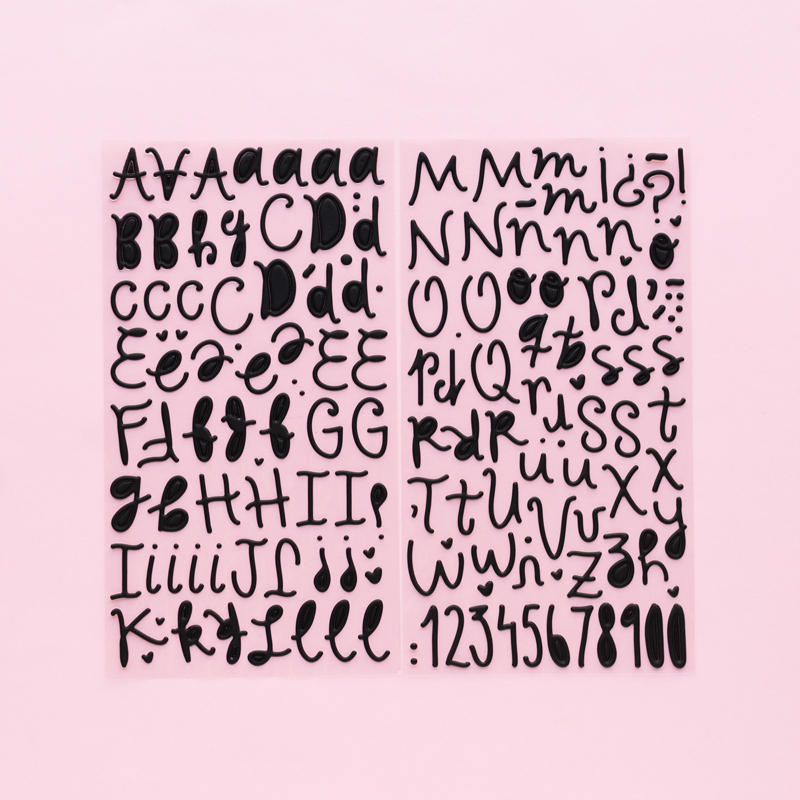 A A A a a a a
B B b g C D d
c c c C D d d
E e e e e E E
F f f f f G G
g g H H I I
I i i i i J J j j
K k k L l l l
M M m m ¡ ¿ ? !
N N n n n n
O O o o P p
P p Q q q s s s
R R R r r S S t
T t U u u x x
W w n V v z z h y
: 1 2 3 4 5 6 7 8 9 0 0